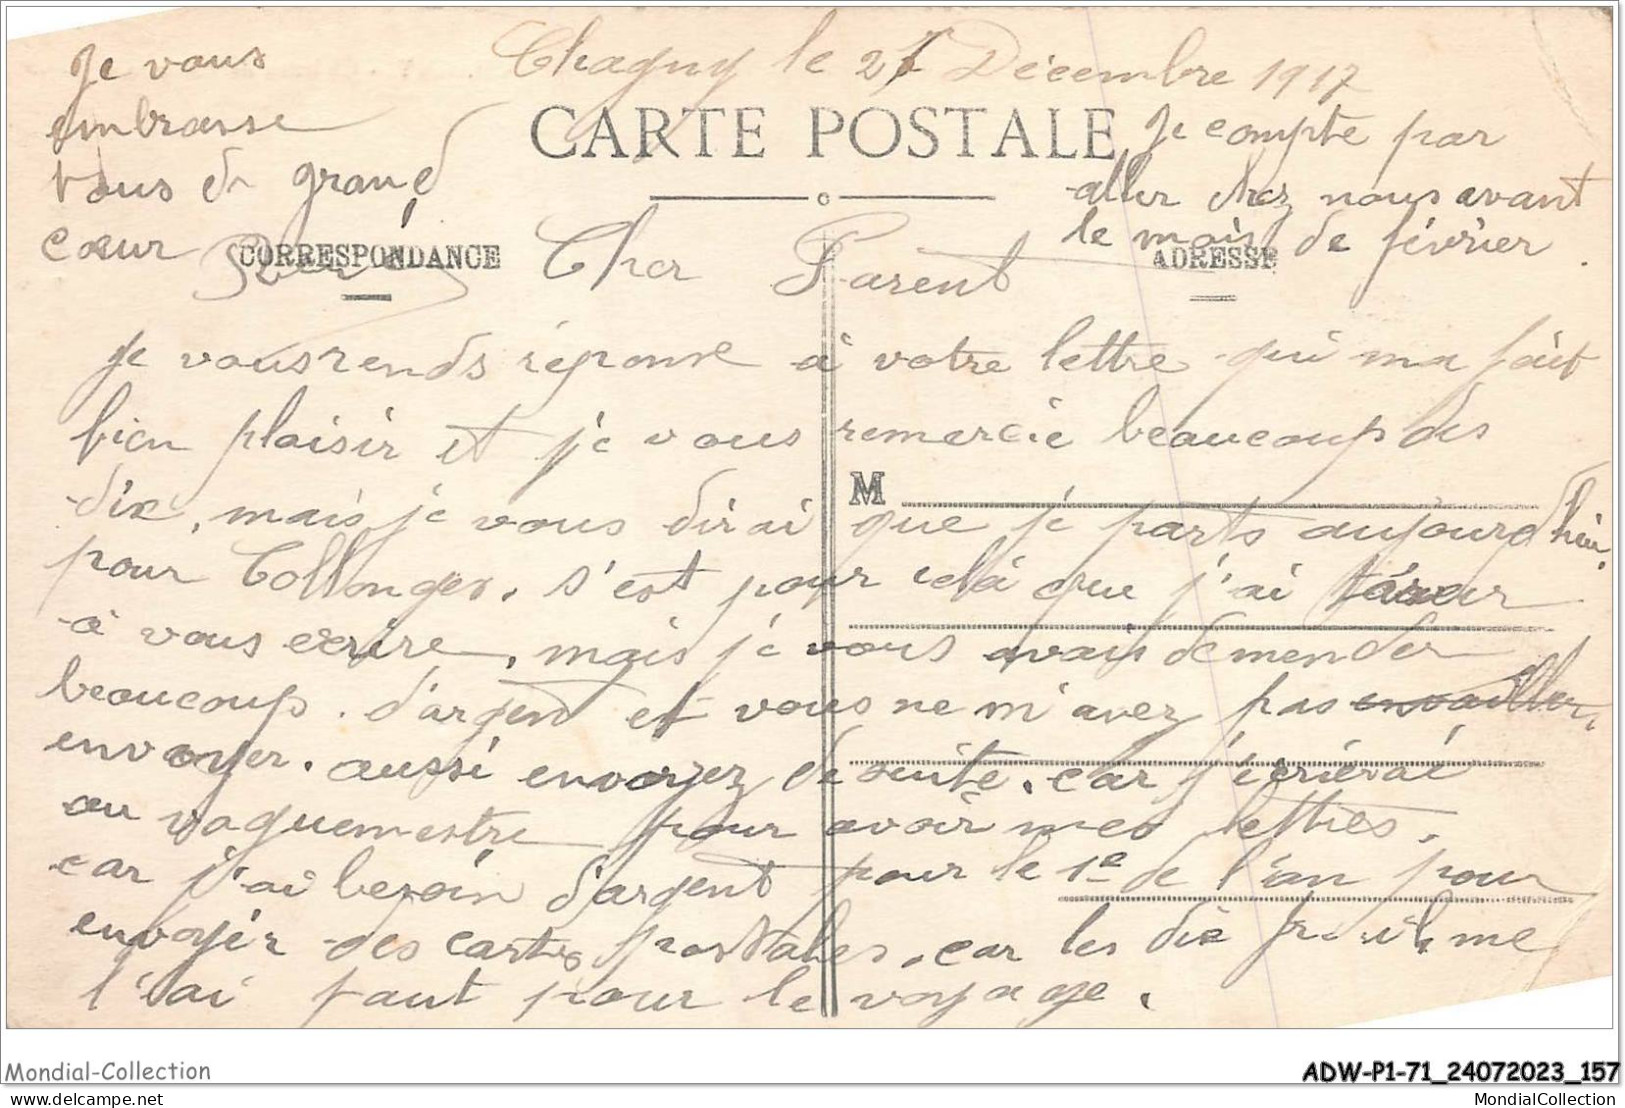 Chagny le 27 Décembre 1917
CARTE POSTALE
Je vous
embrasse
tous de grand
cœur
Je compte par
aller chez nous avant
le mois de février.
CORRESPONDANCE
ADRESSE
Cher Parent
je vous rends réponse à votre lettre qui ma fait
bien plaisir et je vous remercie beaucoup des
dix, mais je vous dirai que je parts aujourdhui.
M
pour Collonges. s'est pour celà que j'ai
à vous ecrire, mais je vous avais demender
beaucoup d'argent et vous ne m'avez pas envoiller,
envoyer. aussi envoyez de suite. car j'écrierai
au vaguemestre pour avoir mes lettres.
car j'ai besoin d'argent pour le 1e de l'an pour
envoyér des cartes postales. car les dix fr. il me
l'ai faut pour le voyage.
Mondial-Collection
ADW-P1-71_24072023_157
delcampe.net
MondialCollection